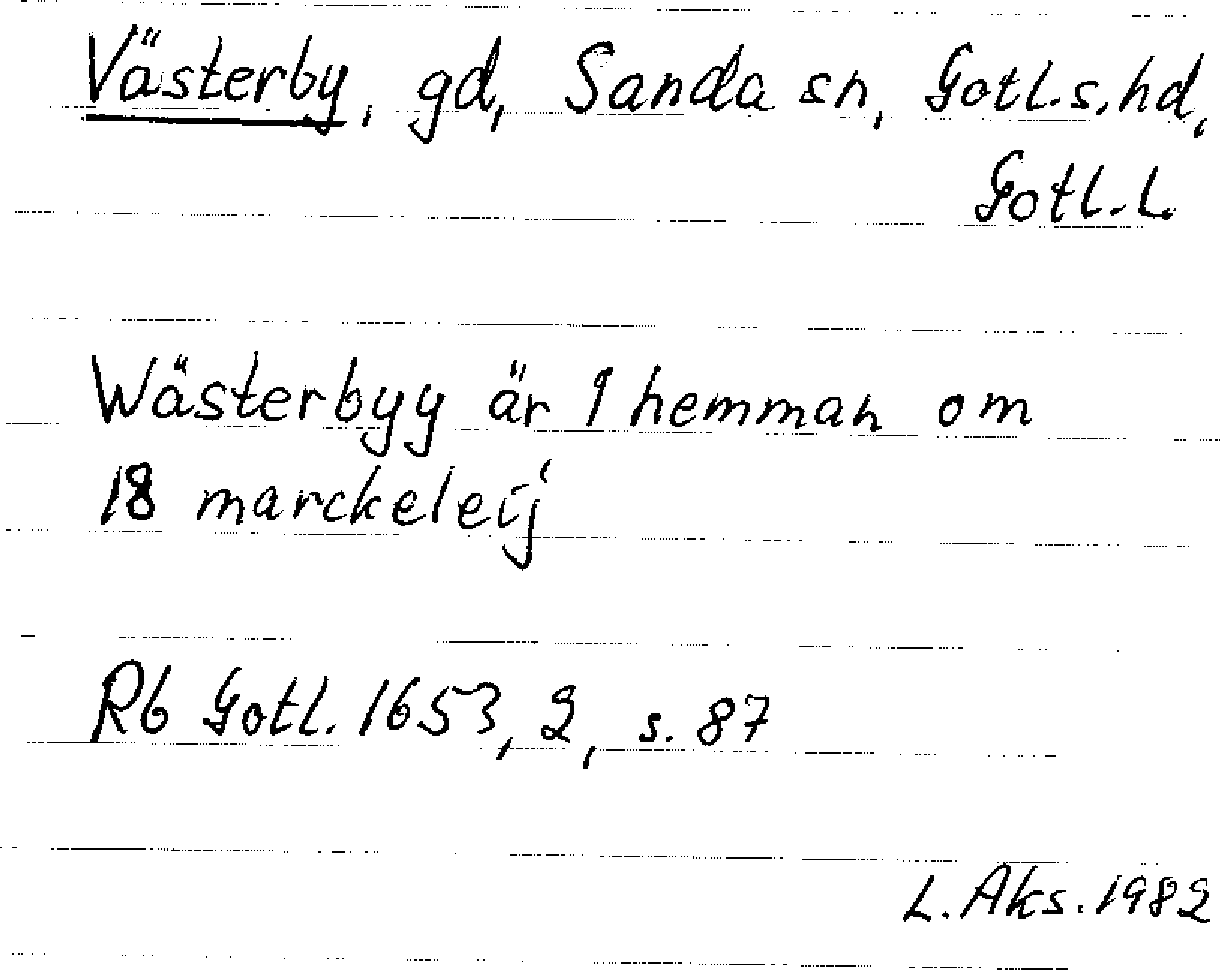 Västerby, gd, Sanda sn, Gotl.s.hd,
Gotl.l.
Wästerbyy är 1 hemman om
18 marckeleij
Rb Gotl. 1653, 2, s. 87
L. Aks. 1982